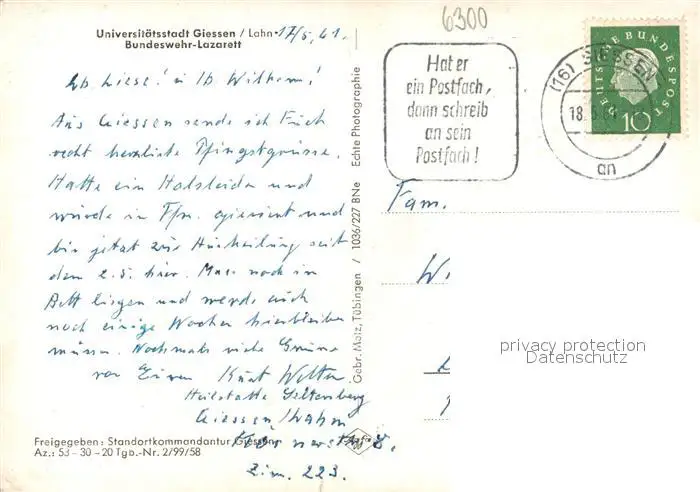 6300
Universitätsstadt Giessen / Lahn 17/5.61.
Bundeswehr-Lazarett
Lb. Liese! u lb Wilhelm!
Aus Giessen sende ich Euch
recht herzliche Pfingstgrüsse.
Hatte ein Halsleiden und
wurde in Ffm. operiert und
bin jetzt zur Ausheilung seit
dem 2.5. hier. Muss noch im
Bett liegen und werde auch
noch einige Wochen hierbleiben
müssen. Nochmals viele Grüsse
von Eurem Kurt
Heilstätte Seltersberg
Giessen/Lahn
Zim. 223.
Freigegeben: Standortkommandantur Giessen
Az.: 53-30-20 Tgb.-Nr. 2/99/58
Gebr. Metz, Tübingen / 1036/227 BNe Echte Photographie
Hat er
ein Postfach,
dann schreib
an sein
Postfach!
(16) GIESSEN
18.5.61
an
DEUTSCHE BUNDESPOST
10
Fam.
W.
privacy protection
Datenschutz